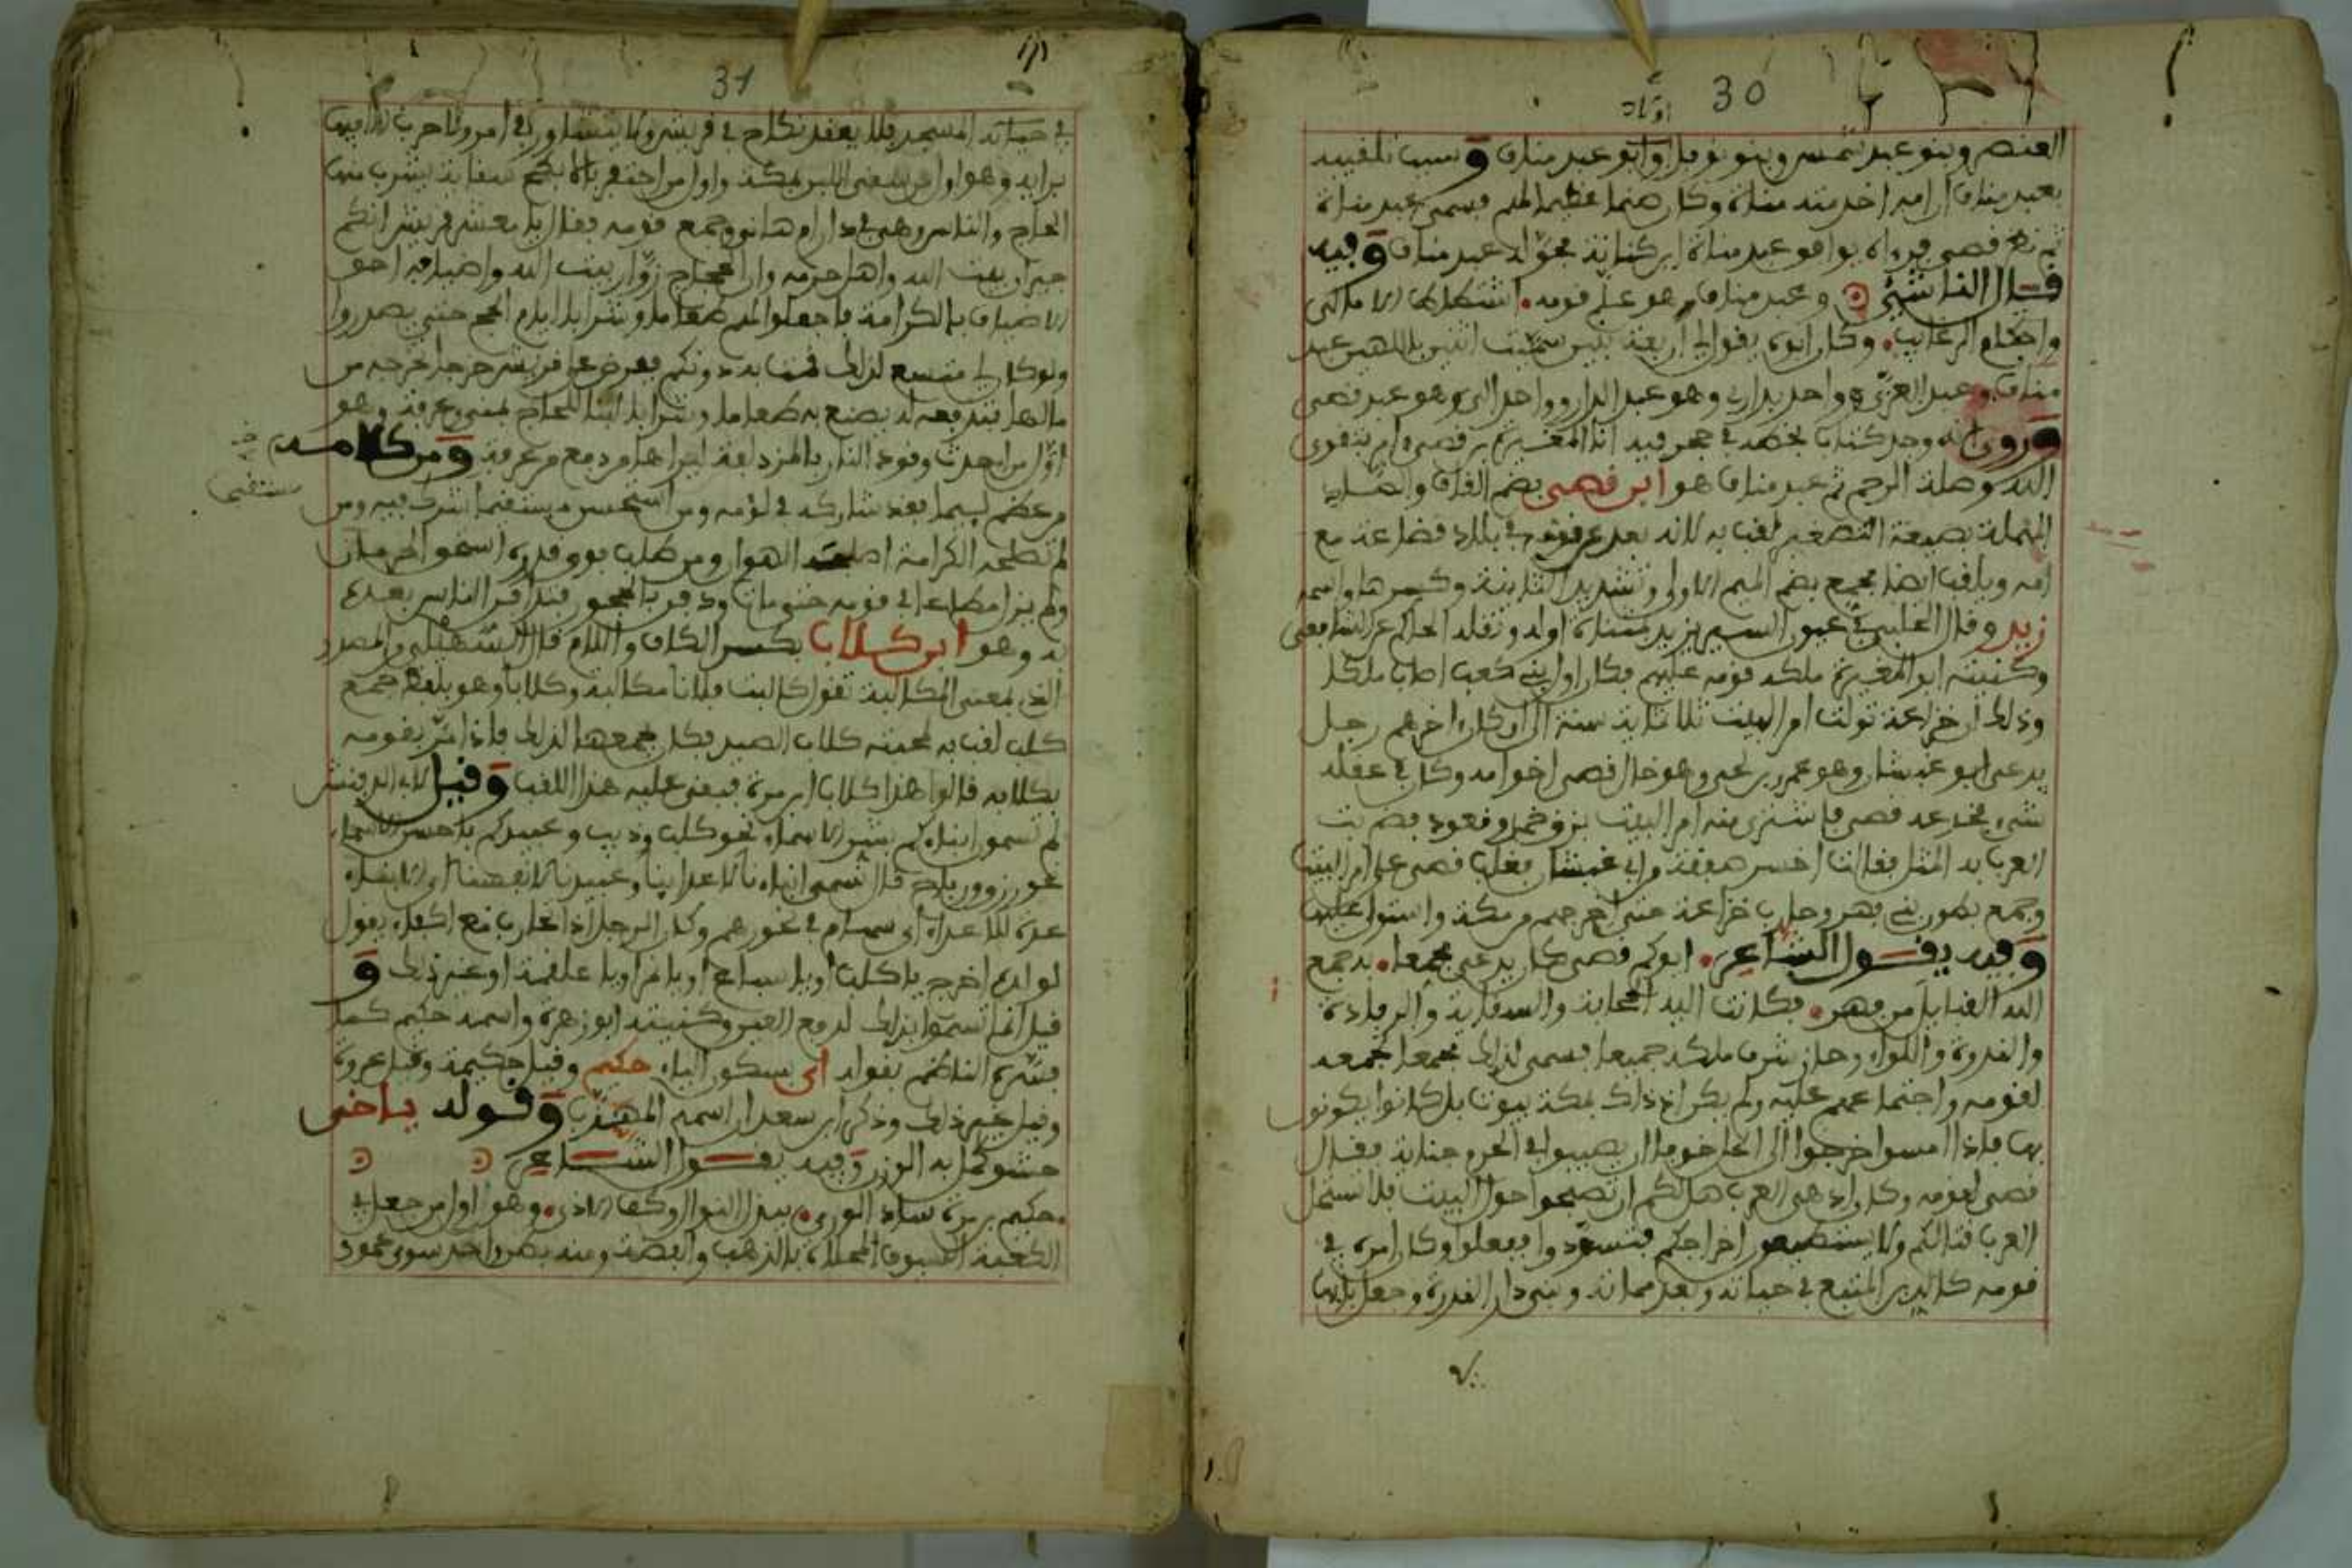 30
العنصر وبنو عبد شمس وبنو نوفل وأبو عبد مناف وسبب تلقيبه
بعبد مناف أن أمه أخدمته مناة وكان صنما عظيما لهم فسمي عبد مناة
ثم نظر قصي فرءاه يوافق عبد مناة ابن كنانة فحوله عبد مناف وفيه
قال الناشئي وعبد مناف وهو علم قومه
وكان ابوه يقول لي أربعة بنين سميت اثنين بإلهين عبد
مناف وعبد العزى وواحد بداري وهو عبد الدار وواحد الي وهو عبد قصي
وروي أنه وجد كتاب بخطه في حجر فيه أنا المغيرة بن قصي أمر بتقوى
الله وصلة الرحم ثم عبد مناف هو ابن قصي بضم القاف والصاد
المهملة بصيغة التصغير لقب به لأنه بعد عن قومه في بلاد قضاعة مع
أمه ويلقب أيضا مجمع بضم الميم الأولى وتشديد الثانية وكسرها واسمه
زيد وقال في عيون السير يزيد ونقله الحاكم عن الشافعي
وكنيته ابو المغيرة ملكه قومه عليهم فكان أول بني كعب أصاب ملكا
وذلك أن خزاعة تولت أمر البيت ثلاثماية سنة الى أن كان ءاخرهم رجل
يدعى ابو غبشان وهو عمرو بن لحي وهو خال قصي أخو أمه وكان في عقله
شيء فخدعه قصي فاشترى منه أمر البيت بزق خمر وقعود فضربت
العرب به المثل فقالت أخسر صفقة من أبي غبشان فغلب قصي على أمر البيت
وجمع بطون بني فهر وحارب خزاعة حتى أخرجهم من مكة واستولى عليها
وفيه يقول الشاعر أبوكم قصي كان يدعى مجمعا به جمع
الله القبايل من فهر فكانت اليه الحجابة والسقاية والرفادة
والندوة واللواء وحاز شرف مكة جميعا فسمي لذلك مجمعا لجمعه
لقومه واجتماعهم عليه ولم يكن إذ ذاك بمكة بيوت بل كانوا يكونون
بها فإذا أمسوا خرجوا الى الحل خوفا أن يصيبوا في الحرم جنابة فقال
قصي لقومه وكان أدهى العرب هل لكم أن تصبحوا حول البيت فلا تستحل
العرب قتالكم ولا يستطيعون اخراجكم فتسودوا ففعلوا وكان أمره في
قومه كالدين المتبع في حياته وبعد مماته وبنى دار الندوة وجعل بابها
31
في حياته المسجد فلا يعقد نكاح في قريش ولا يتشاور في أمر ولا حرب إلا فيها
برأيه وهو أول من سقى اللبن بمكة وأول من احتفر بالأبطح سقاية يشرب منها
الحاج والناس وهي في دار ام هانئ وجمع قومه فقال يا معشر قريش انكم
جيران بيت الله وأهل حرمه وان الحجاج زوار بيت الله وأضيافه أحق
الأضياف بالكرامة فاجعلوا لهم طعاما وشرابا أيام الحج حتى يصدروا
ولو كان لي متسع لذلك قمت به دونكم ففرض على قريش خرجا تخرجه من
مالها فتدفعه له يصنع به طعاما وشرابا للحاج بمنى وعرفة وهو
أول من احدث وقود النار بالمزدلفة ليراها من دفع من عرفة ومن كلامه
من عظم ليما فقد شاركه في لؤمه ومن استحسن مستقبحا شرك فيه ومن
لم تصلحه الكرامة أصلحه الهوان ومن طلب فوق قدره استحق الحرمان
ولم يزل مطاعا في قومه حتى مات ودفن بالحجون فتدافن الناس بعده
به وهو ابن كلاب بكسر الكاف واللام قال السهيلي والمصدر
الذي بمعنى المكالبة تقول كالبت فلانا مكالبة وكلابا وهو بلفظ جمع
كلب لقب به لمحبته كلاب الصيد فكان يجمعها لذلك فإذا مر بقومه
بكلابه قالوا هذه كلاب ابن مرة فبقي عليه هذا اللقب وقيل
لم تسمون ابناءكم بشر الأسماء نحو كلب وذيب وعبيدكم بأحسن الأسماء
نحو رزق ورباح قال نسمي ابناءنا لأعداينا وعبيدنا لأنفسنا أي الأبناء
عدة للأعداء أي سهام في نحورهم وكان الرجل إذا تحارب مع أكفاء يقول
لولده اخرج يا كلب أو يا سباع أو يا مر أو يا علقمة أو غير ذلك و
قيل إنما تسموا بذلك لدفع العين وكنيته أبو زهرة واسمه حكيم كما
فسره الناظم بقوله أي بسكون الياء حكيم وقيل حكيمة وقيل عروة
وقيل غير ذلك وذكر ابن سعد أن اسمه المهذب وقوله يا أخي
حشو كمل به الوزن وفيه يقول الشاعر
حكيم بن مرة ساد الورى ببذل النوال وكف الأذى وهو أول من جعل في
الكعبة السيوف المحلاة بالذهب والفضة ومنه بطن واحد سوى عمود